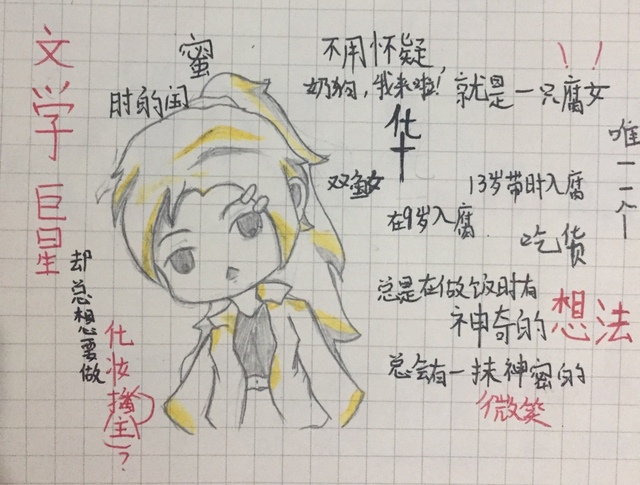 文学巨星
蜜
肘的闺
却总想要做
化妆擒主？
不用怀疑，
奶狗，我来啦！
就是一只腐女
!!
化
十
双鱼女
13岁带肘入腐
在9岁入腐
吃货
唯一一个
总是在做饭时有
神奇的
想法
总会有一抹神蜜的
微笑